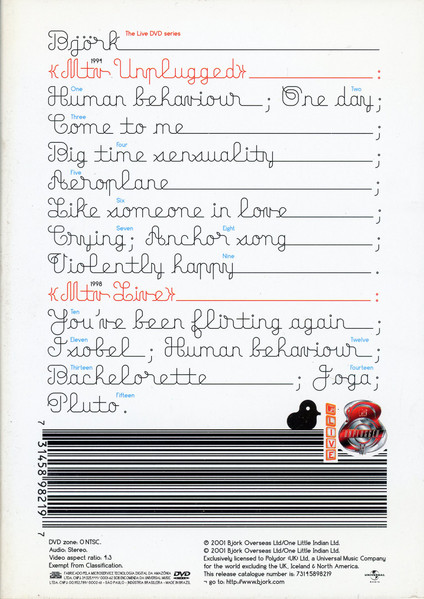 Björk The Live DVD series
1994
«Mtv Unplugged» :
One Two
Human behaviour ; One day ;
Three
Come to me ;
Four
Big time sensuality ;
Five
Aeroplane ;
Six
Like someone in love ;
Seven Eight
Crying ; Anchor song ;
Nine
Violently happy .
1998
«Mtv Live» :
Ten
You've been flirting again ;
Eleven Twelve
Isobel ; Human behaviour ;
Thirteen Fourteen
Bachelorette ; Joga ;
Fifteen
Pluto .
LIVE
7 31458 98219 7
DVD zone: 0 NTSC.
Audio: Stereo.
Video aspect ratio: 4:3
Exempt from Classification.
℗ 2001 Bjork Overseas Ltd/One Little Indian Ltd.
© 2001 Bjork Overseas Ltd/One Little Indian Ltd.
Exclusively licensed to Polydor (UK) Ltd, a Universal Music Company
for the world excluding the UK, Iceland & North America.
This release catalogue number is: 73145898219
go to: http://www.bjork.com
FABRICADO PELA MICROSERVICE TECNOLOGIA DIGITAL DA AMAZÔNIA
DVD
UNIVERSAL